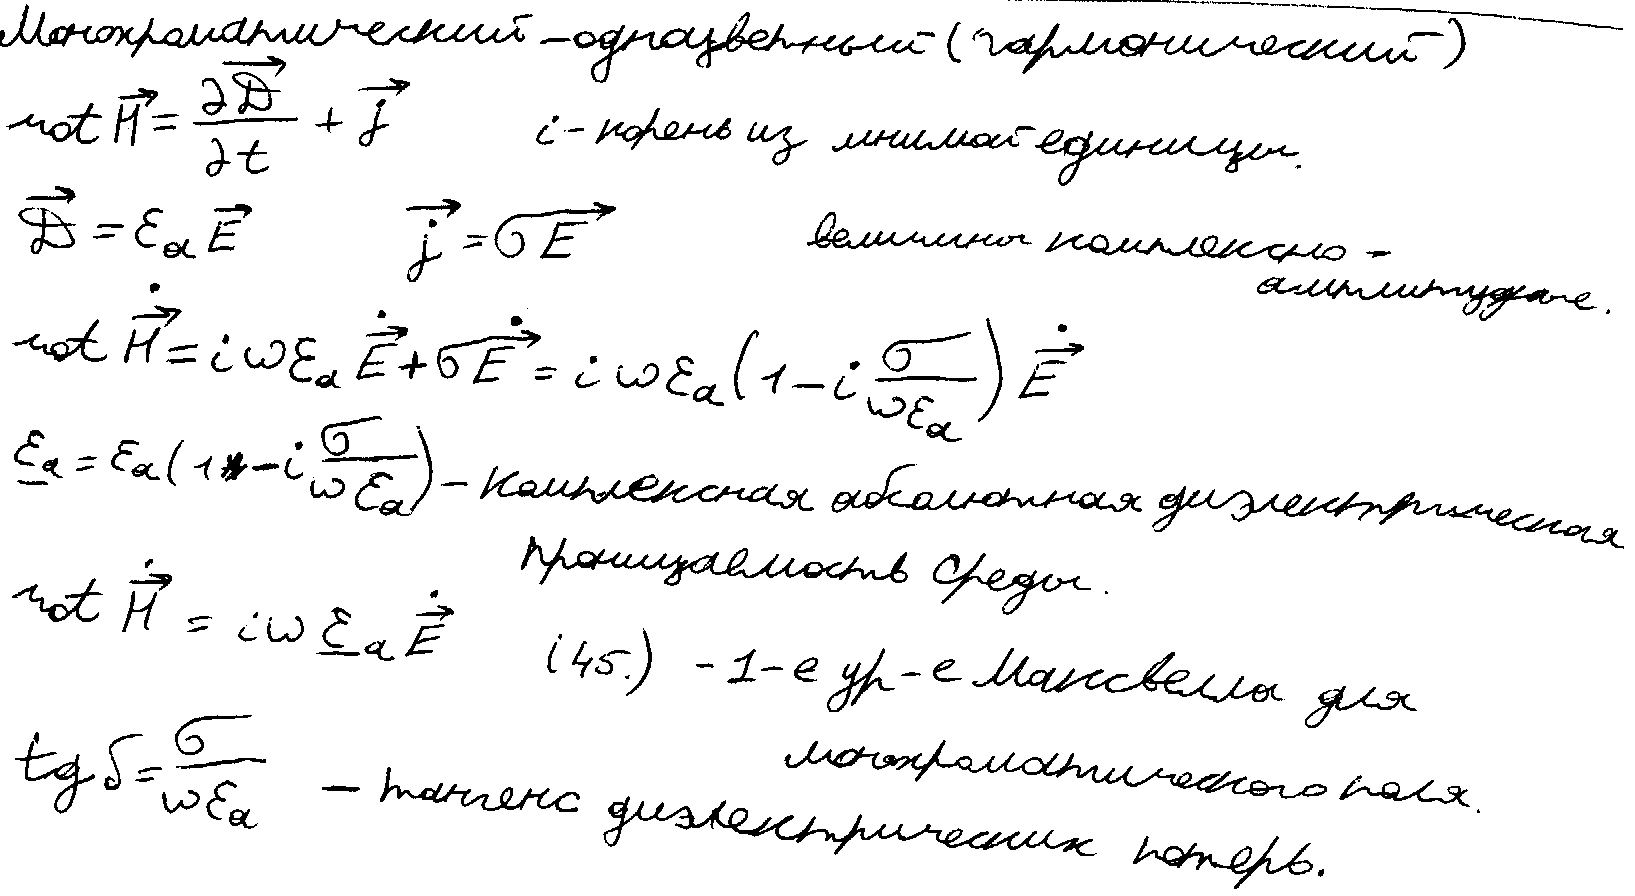 Монохроматический – одноцветный (гармонический)
rot H⃗ = ∂D⃗/∂t + j⃗    i – корень из мнимой единицы.
D⃗ = εₐE⃗    j⃗ = σE⃗    величины комплексно –
амплитудные.
rot Ḣ⃗ = iωεₐĖ⃗ + σĖ⃗ = iωεₐ(1 – i σ/(ωεₐ)) Ė⃗
ε̲ₐ = εₐ(1 – i σ/(ωεₐ)) – комплексная абсолютная диэлектрическая
проницаемость среды.
rot Ḣ⃗ = iω ε̲ₐ Ė⃗    (45.) – 1-е ур-е Максвелла для
монохроматического поля.
tg δ = σ/(ωεₐ) – тангенс диэлектрических потерь.